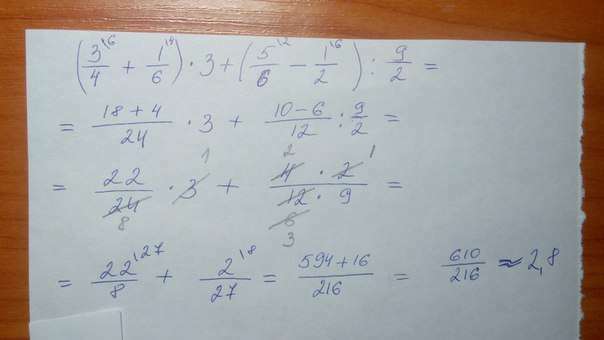 (3/4 \6 + 1/6 \4) · 3 + (5/6 \2 − 1/2 \6) : 9/2 =
= 18 + 4/24 · 3 + 10 − 6/12 : 9/2 =
= 22/24 8 · 3 1 + 4 2 · 2 1/12 6 3 · 9 =
= 22/8 \27 + 2/27 \8 = 594 + 16/216 = 610/216 ≈ 2,8